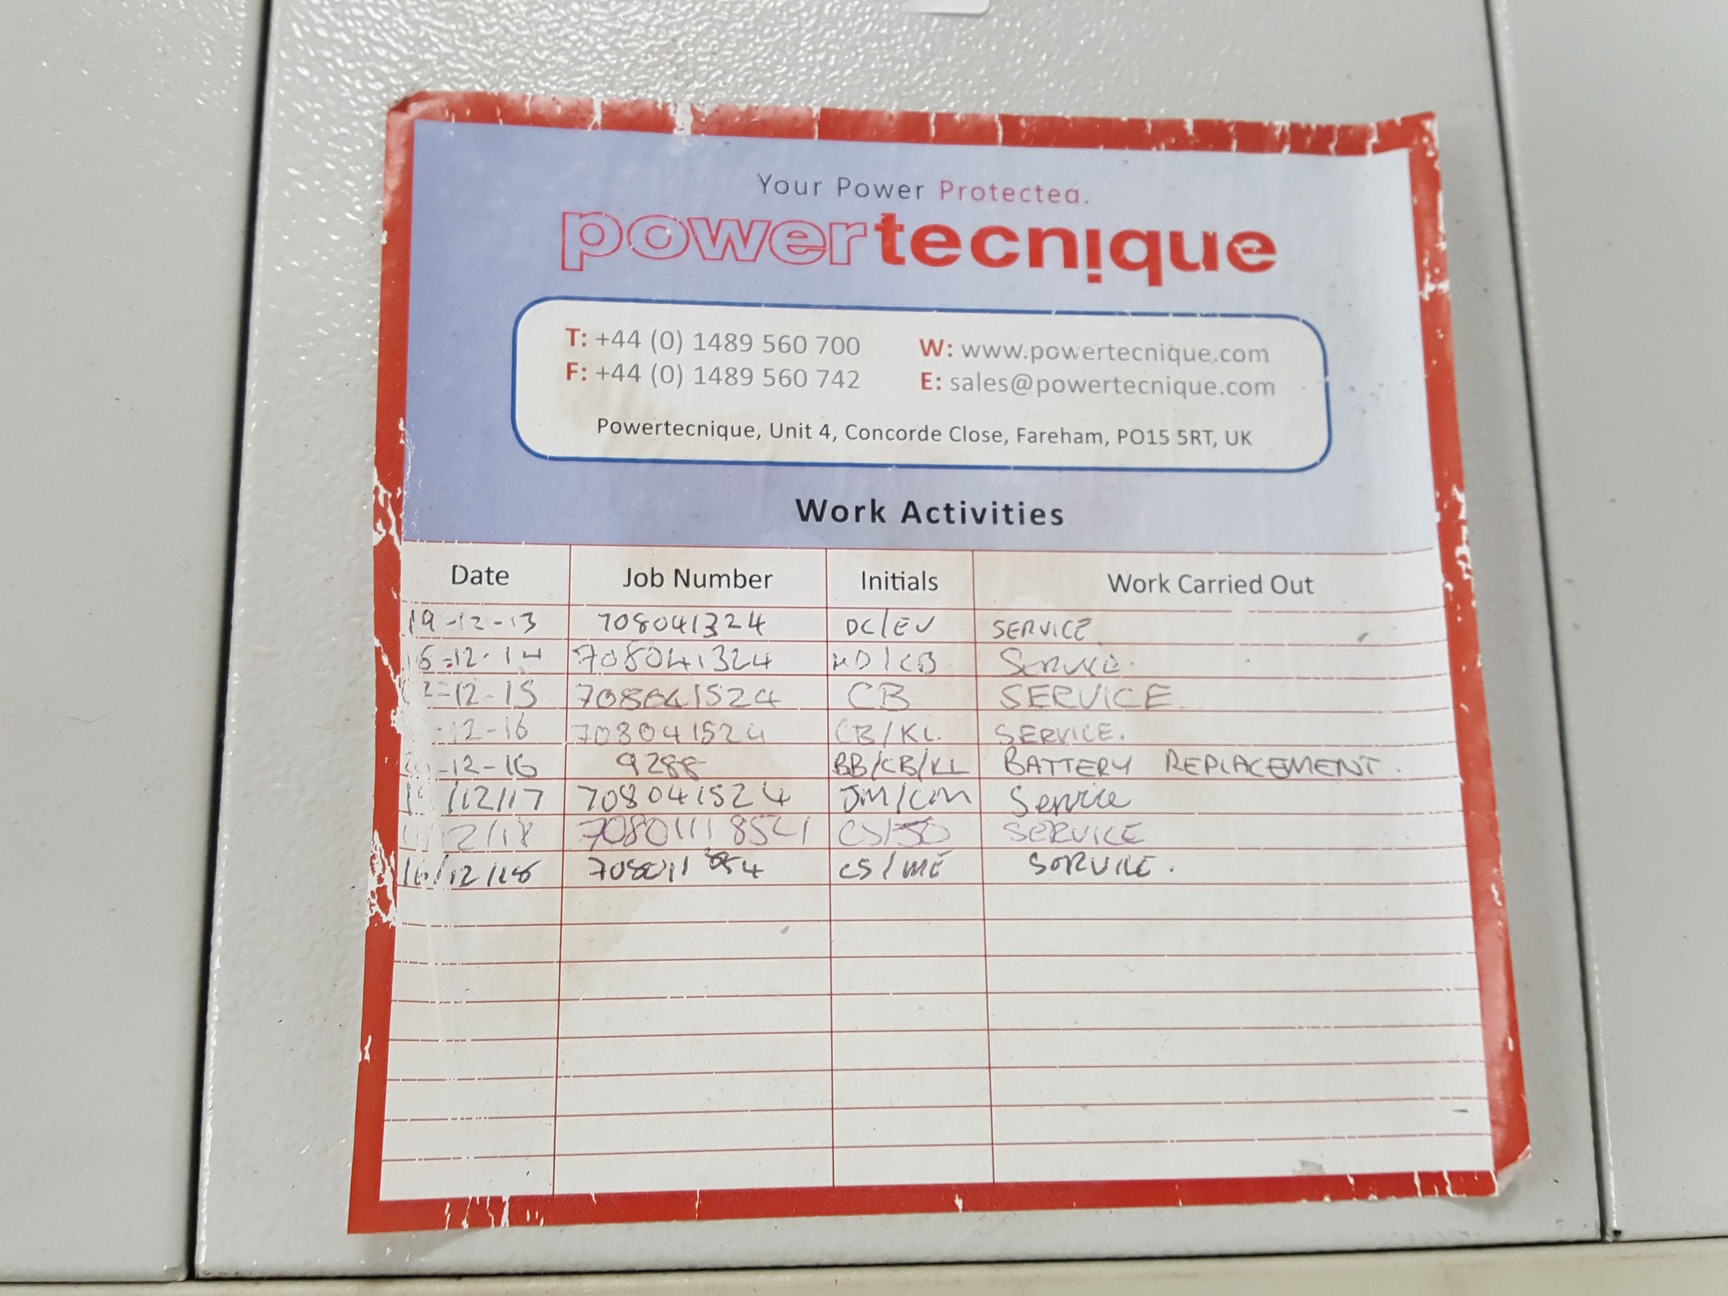 Your Power Protected.
powertecnique
T: +44 (0) 1489 560 700 W: www.powertecnique.com
F: +44 (0) 1489 560 742 E: sales@powertecnique.com
Powertecnique, Unit 4, Concorde Close, Fareham, PO15 5RT, UK
Work Activities
Date Job Number Initials Work Carried Out
19-12-13 708041324 DC/EV SERVICE
-12-14 708041324 Service.
-12-15 708041524 CB SERVICE
-12-16 708041524 CB/KL. SERVICE.
-12-16 9288 BB/CB/KL BATTERY REPLACEMENT.
/12/17 708041524 JM/CM Service
2/18 SERVICE
CS/ME SERVICE.